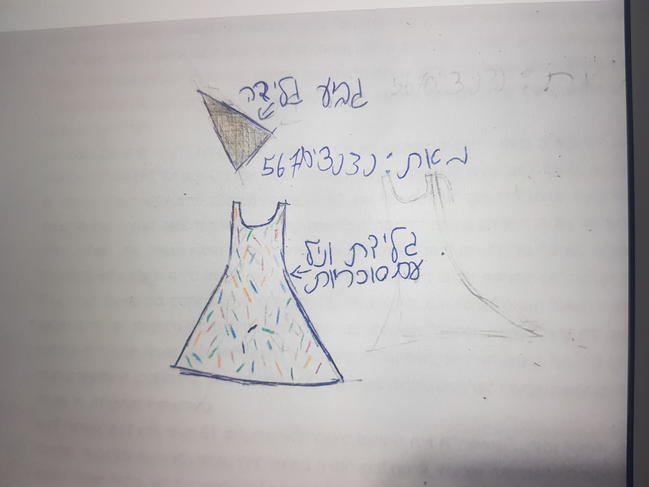 גביע גלידה
מאת: נצנצים567
גלידת וניל
עם סוכריות